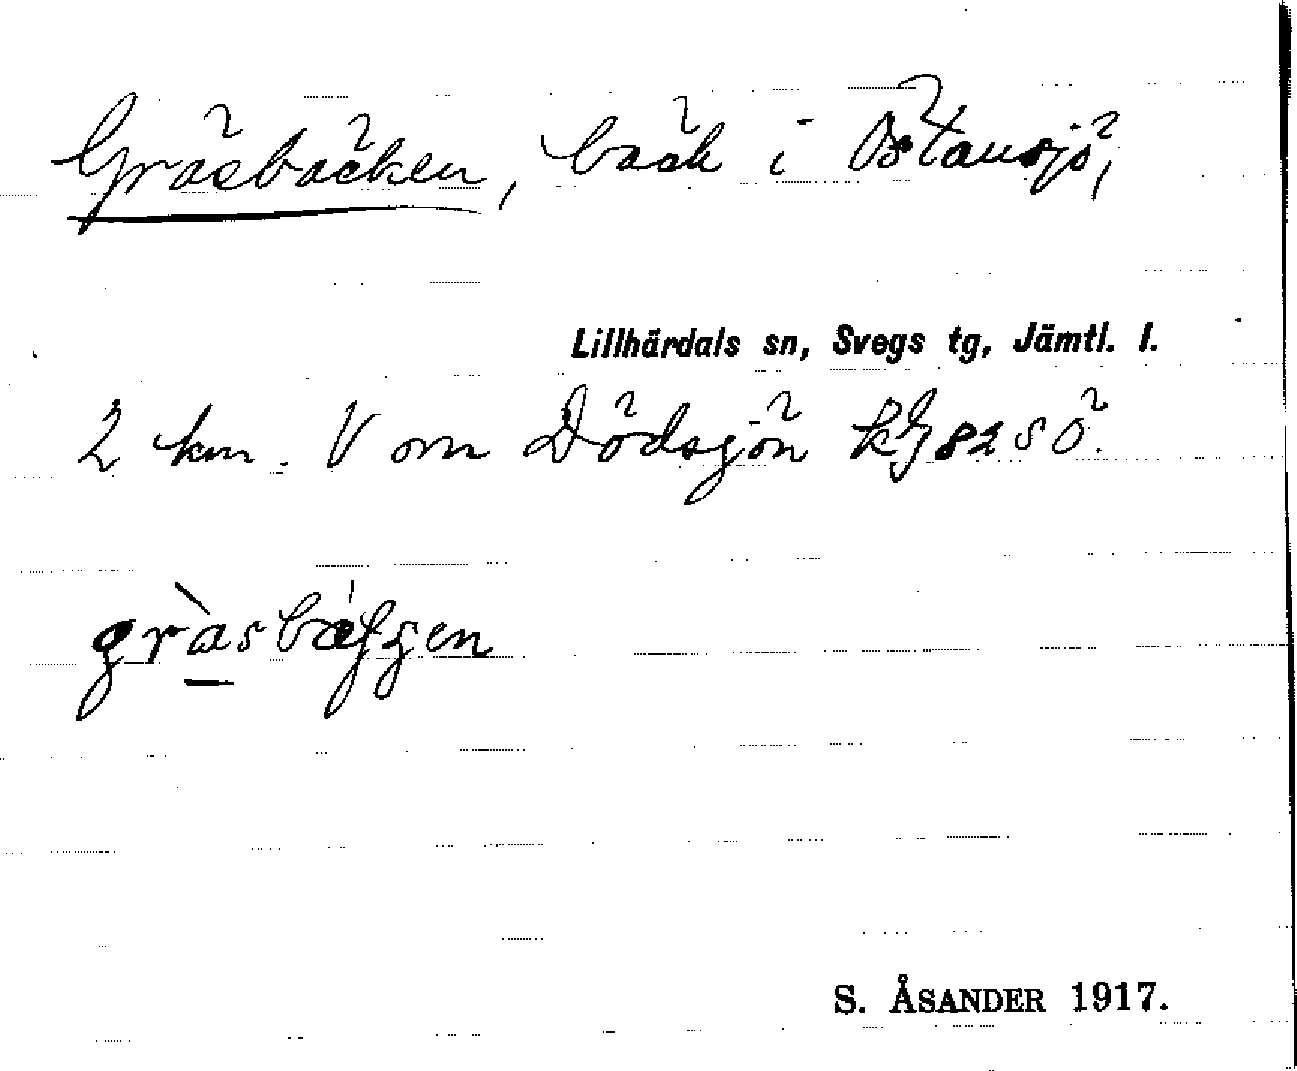 Gräsbäcken, bäck i Östansjö,
Lillhärdals sn, Svegs tg, Jämtl. l.
2 km. V om Dödsjön kbl 82 SÖ.
S. ÅSANDER 1917.